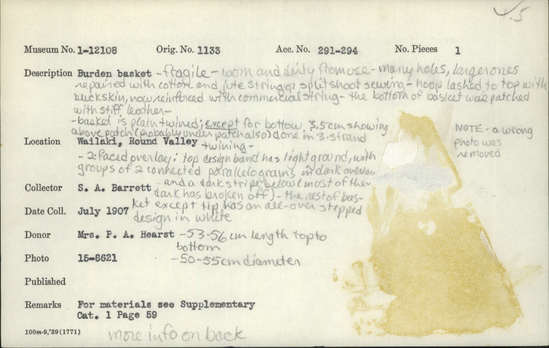 ✓5
Museum No. 1-12108 Orig. No. 1133 Acc. No. 291-294 No. Pieces 1
Description Burden basket - fragile - worn and dirty from use - many holes, larger ones
repaired with cotton and jute string or split shoot sewing - hoop lashed to top with
buckskin, now reinforced with commercial string - the bottom of basket was patched
with stiff leather -
- basket is plain twined; except for bottom 3.5cm showing
above patch (probably under patch also) done in 3-strand
Location Wailaki, Round Valley twining -
- 2 faced overlay: top design band has light ground, with
groups of 2 connected parallelograms in dark overlay
Collector S. A. Barrett - and a dark stripe below (most of the
dark has broken off) - the rest of bas-
Date Coll. July 1907 ket except tip has an all-over stepped
design in white
Donor Mrs. P. A. Hearst - 53-56 cm length top to
bottom
Photo 15-8621 - 50-55cm diameter
Published
Remarks For materials see Supplementary
Cat. 1 Page 59
100m-9,'29(1771) more info on back
NOTE - a wrong
photo was
removed